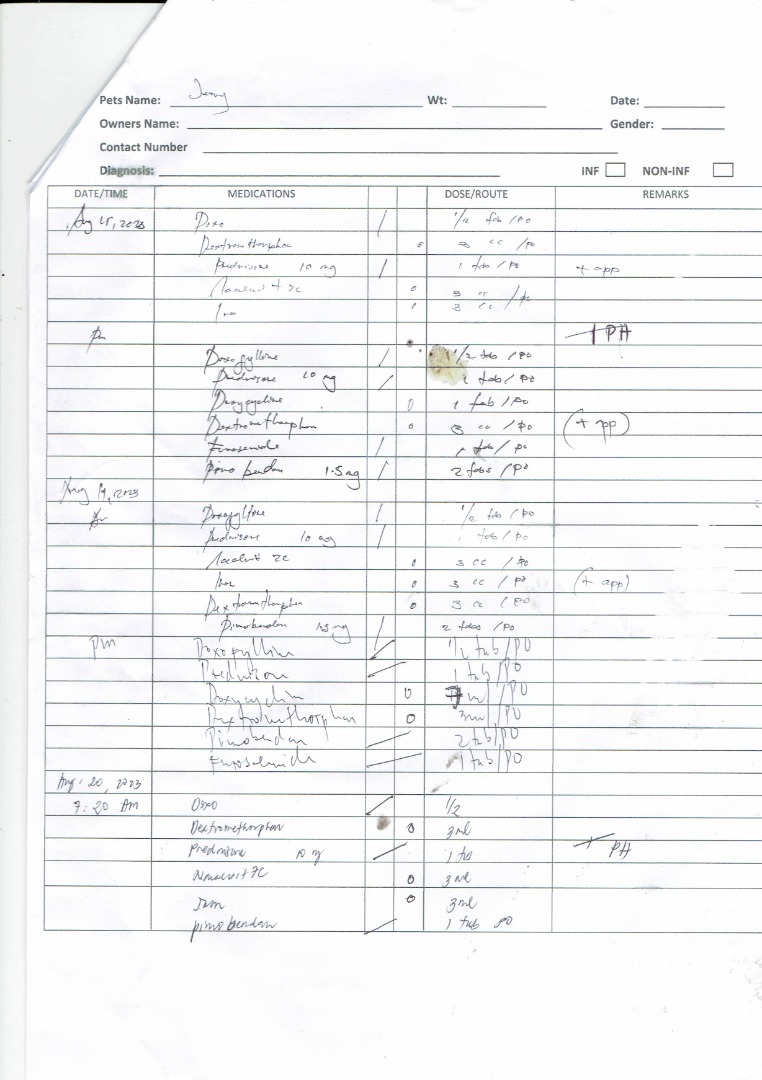 Pets Name: Wt: Date:
Owners Name: Gender:
Contact Number
Diagnosis: INF NON-INF
DATE/TIME MEDICATIONS DOSE/ROUTE REMARKS
Aug 2023 Doxo / 1/2 tab /po
Dextromethorphan o 3 cc /po
Prednisone 10 mg / 1 tab /po + app
o 3 cc /po
o 3 cc /po
pm + PH
Doxofylline / 1/2 tab /po
Prednisone 10 mg / 1 tab /po
Doxycycline 0 1 tab /po
Dextromethorphan o 3 cc /po (+ app)
Furosemide / 1 tab /po
Pimobendan 1.5 mg / 2 tabs /po
Aug 19, 2023
Doxofylline / 1/2 tab /po
Prednisone 10 mg / 1 tab /po
o 3 cc /po
o 3 cc /po (+ app)
Dextromethorphan o 3 cc /po
Pimobendan mg / 2 tabs /po
pm Doxofyllin / 1/2 tab/PO
Prednison / 1 tab/PO
Doxycyclin 0 ml/PO
Dextromethorphan o 3ml/PO
Pimobendan / 2 tab/PO
Furosemide / 1 tab/PO
Aug. 20, 2023
9:20 Am Doxo / 1/2
Dextromethorphan o 3ml
Prednisone 10 mg / 1 tab + PH
o 3ml
o 3ml
pimobendan / 1 tab PO